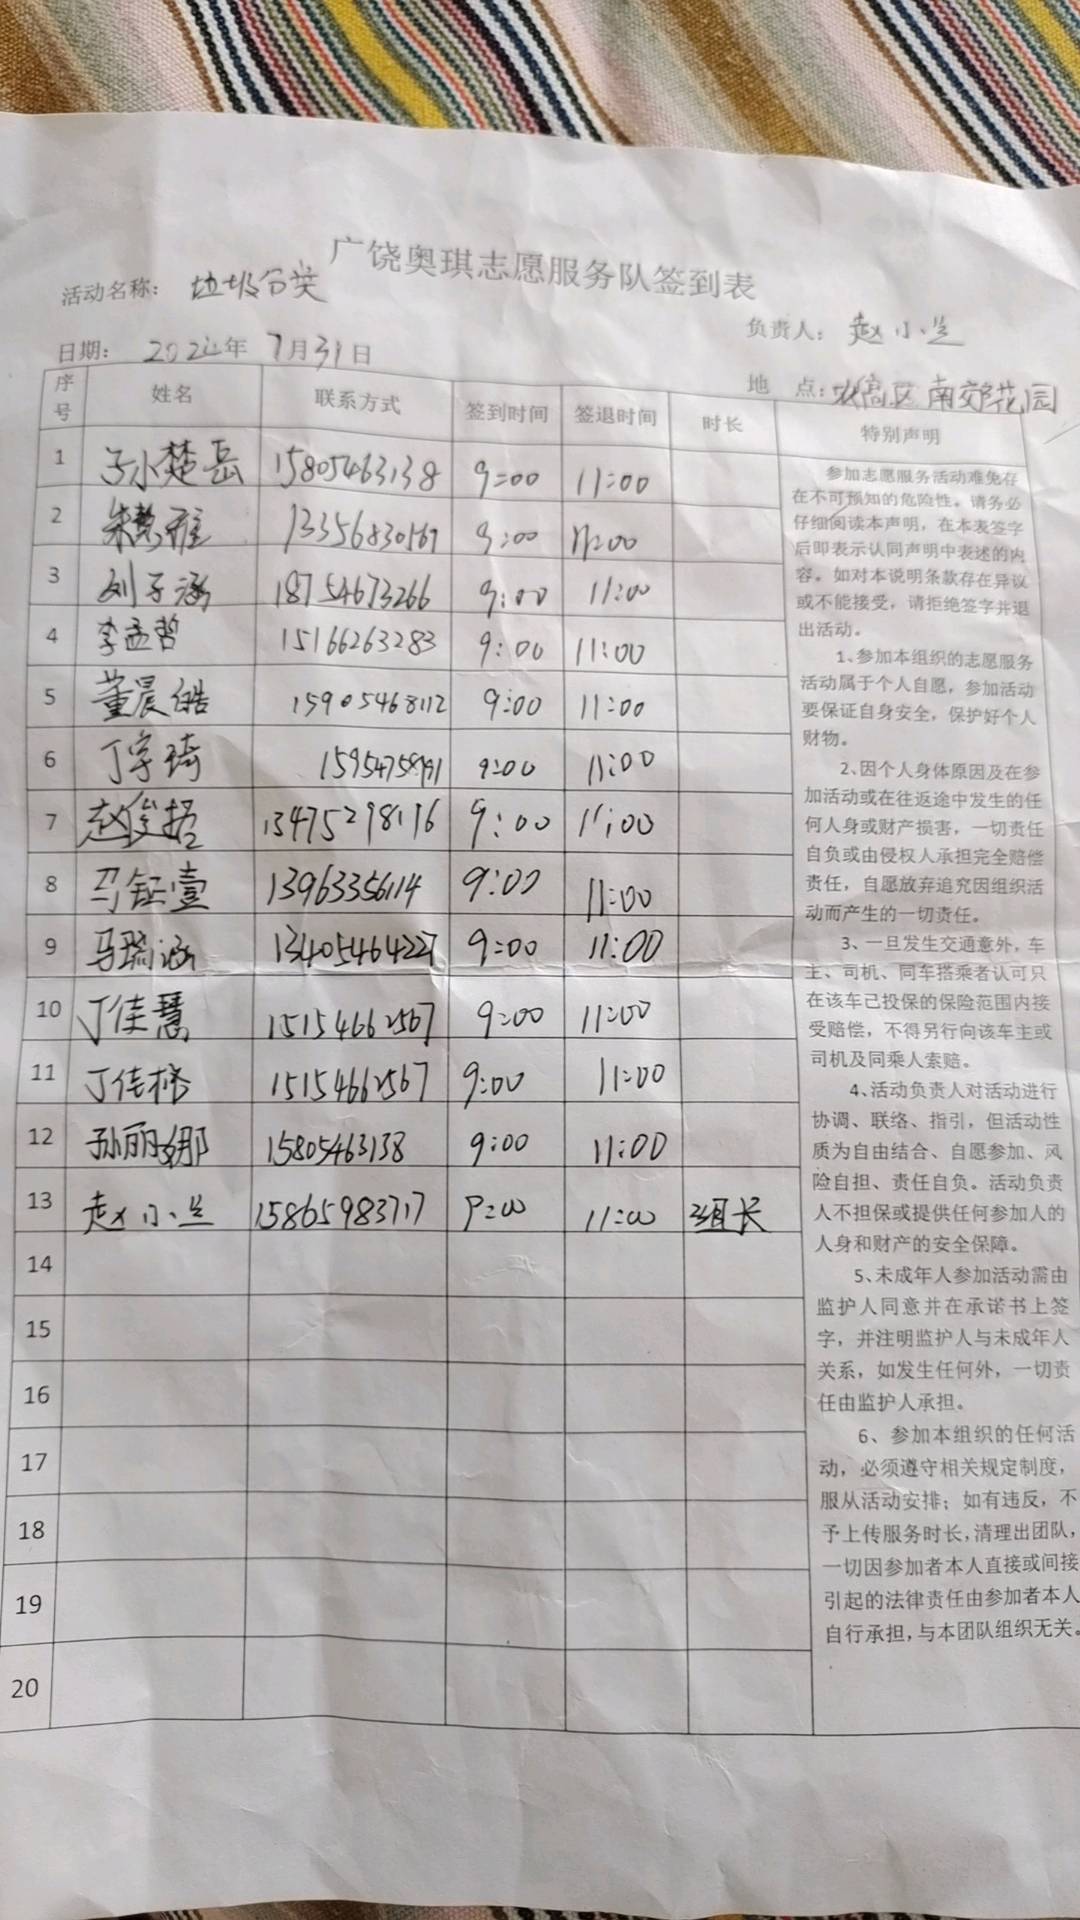 广饶奥琪志愿服务队签到表
活动名称： 垃圾分类
负责人： 赵小兰
日期： 2024年 7月31日
地 点： 农高区 南郊花园
序号 姓名 联系方式 签到时间 签退时间 时长 特别声明
1 于小楚岳 15805463138 9:00 11:00
2 朱慧雅 13356830567 9:00 11:00
3 刘子涵 18754673266 9:00 11:00
4 李孟哲 15166263283 9:00 11:00
5 董晨皓 15905468112 9:00 11:00
6 丁宇琦 9:00 11:00
7 赵俊搭 13475298176 9:00 11:00
8 马钰壹 13963356114 9:00 11:00
9 马瑞涵 13405464227 9:00 11:00
10 丁佳慧 15154662567 9:00 11:00
11 丁佳榕 15154662567 9:00 11:00
12 孙丽娜 15805463138 9:00 11:00
13 赵小兰 15865983717 9:00 11:00 组长
14
15
16
17
18
19
20
参加志愿服务活动难免存
在不可预知的危险性。请务必
仔细阅读本声明，在本表签字
后即表示认同声明中表述的内
容。如对本说明条款存在异议
或不能接受，请拒绝签字并退
出活动。
1、参加本组织的志愿服务
活动属于个人自愿，参加活动
要保证自身安全，保护好个人
财物。
2、因个人身体原因及在参
加活动或在往返途中发生的任
何人身或财产损害，一切责任
自负或由侵权人承担完全赔偿
责任，自愿放弃追究因组织活
动而产生的一切责任。
3、一旦发生交通意外，车
主、司机、同车搭乘者认可只
在该车已投保的保险范围内接
受赔偿，不得另行向该车主或
司机及同乘人索赔。
4、活动负责人对活动进行
协调、联络、指引，但活动性
质为自由结合、自愿参加、风
险自担、责任自负。活动负责
人不担保或提供任何参加人的
人身和财产的安全保障。
5、未成年人参加活动需由
监护人同意并在承诺书上签
字，并注明监护人与未成年人
关系，如发生任何外，一切责
任由监护人承担。
6、参加本组织的任何活
动，必须遵守相关规定制度，
服从活动安排；如有违反，不
予上传服务时长，清理出团队，
一切因参加者本人直接或间接
引起的法律责任由参加者本人
自行承担，与本团队组织无关。